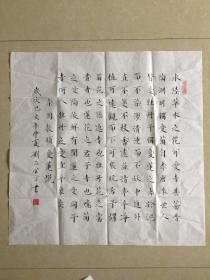 水陸草木之花可愛者甚蕃晉
陶淵明獨愛菊自李唐來世人
盛愛牡丹予獨愛蓮之出淤泥
而不染濯清漣而不妖中通外
直不蔓不枝香遠益清亭亭淨
植可遠觀而不可褻玩焉予謂
菊花之隱逸者也牡丹花之富
貴者也蓮花之君子者也噫菊
之愛陶後鮮有聞蓮之愛同予
者何人牡丹之愛宜乎眾矣
宋周敦頤愛蓮說
歲次己亥年仲夏 劉 書